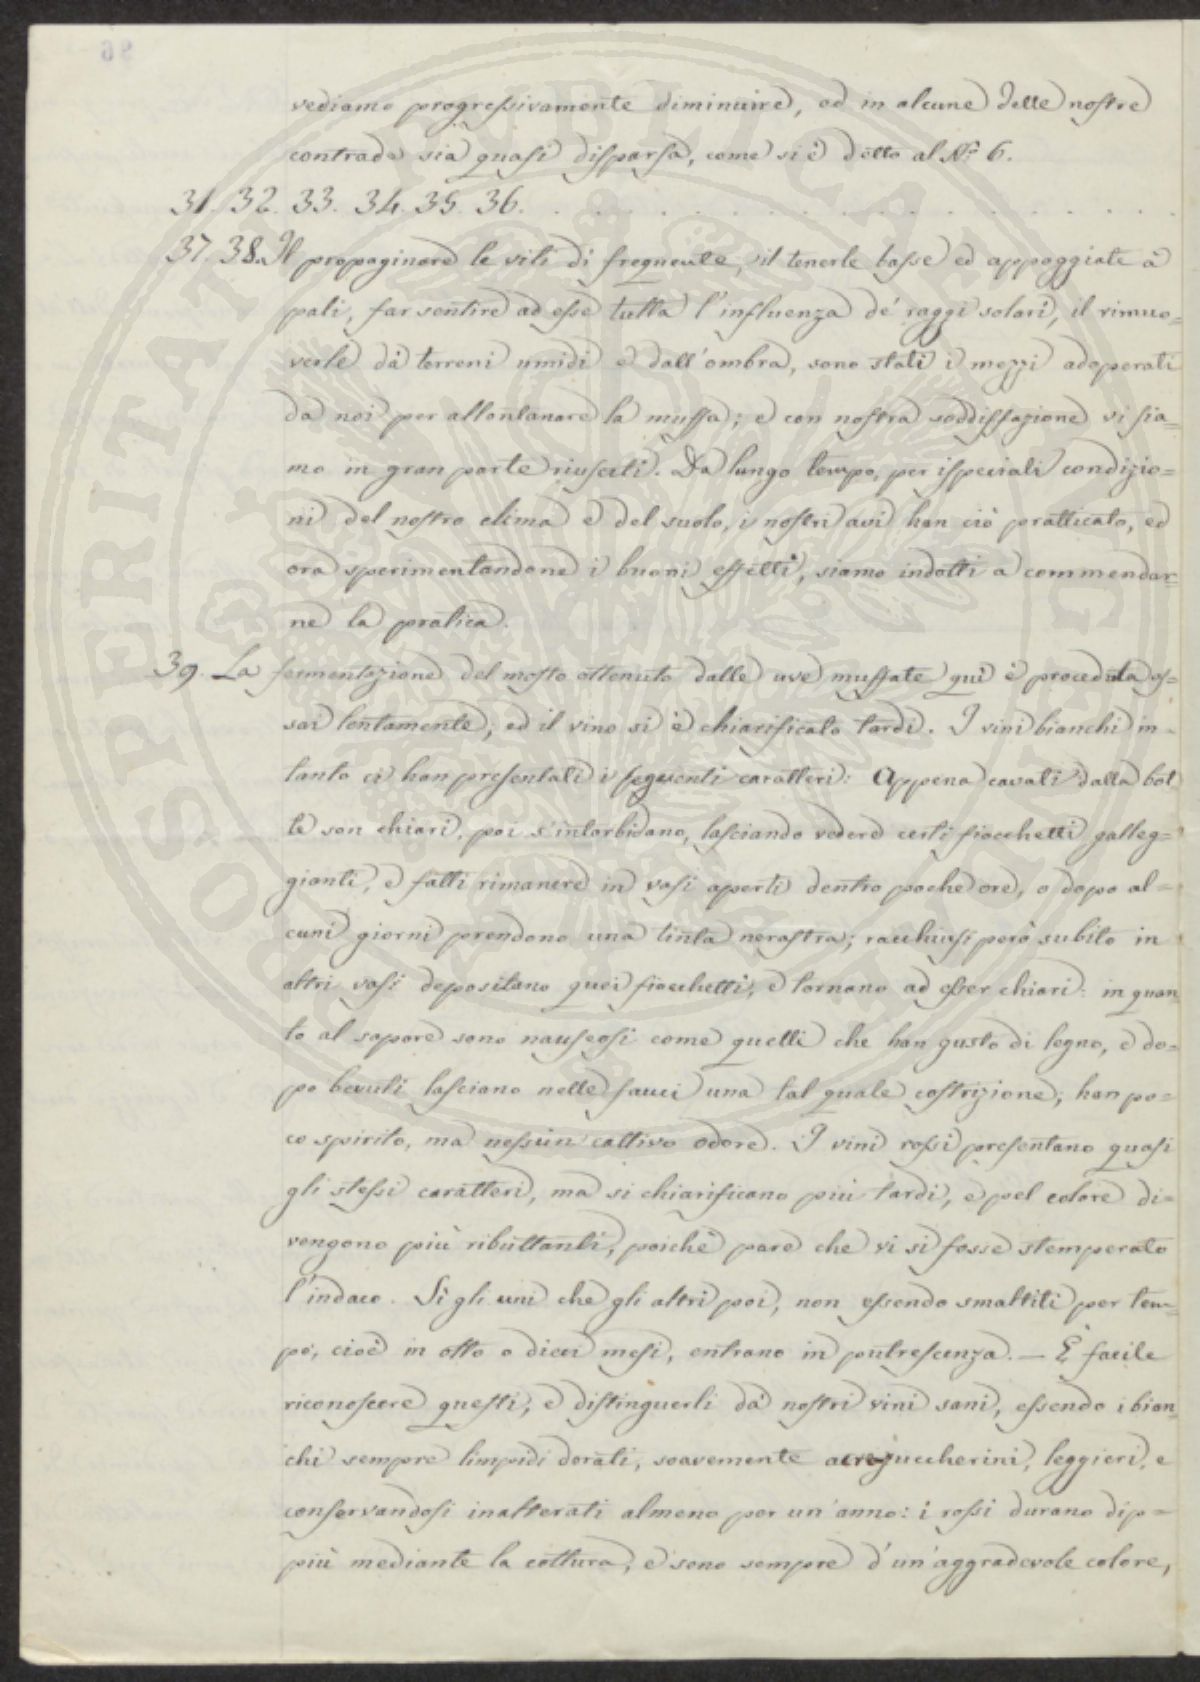 vediamo progressivamente diminuire, ed in alcune delle nostre
contrade sia quasi disparsa, come si è detto al N.º 6.
31. 32. 33. 34. 35. 36. . . . . . . . . . . . . .
37. 38. Il propaginare le viti di frequente, il tenerle basse ed appoggiate a
pali, far sentire ad esse tutta l'influenza de' raggi solari, il rimuo=
verle da' terreni umidi e dall'ombra, sono stati i mezzi adoperati
da noi per allontanare la muffa; e con nostra soddisfazione vi sia=
mo in gran parte riusciti. Da lungo tempo, per ispeciali condizio=
ni del nostro clima e del suolo, i nostri avi han ciò pratticato, ed
ora sperimentandone i buoni effetti, siamo indotti a commendar=
ne la pratica.
39. La fermentazione del mosto ottenuto dalle uve muffate quì è proceduta as=
sai lentamente; ed il vino si è chiarificato tardi. I vini bianchi in=
tanto ci han presentati i seguenti caratteri: Appena cavati dalla bot
te son chiari, poi s'intorbidano, lasciando vedere certi fiocchetti galleg=
gianti, e fatti rimanere in vasi aperti dentro poche ore, o dopo al=
cuni giorni prendono una tinta nerastra; racchiusi però subito in
altri vasi depositano quei fiocchetti, e tornano ad esser chiari: in quan
to al sapore sono nauseosi come quelli che han gusto di legno, e do=
po bevuti lasciano nelle fauci una tal quale costrizione; han po=
co spirito, ma nessun cattivo odore. I vini rossi presentano quasi
gli stessi caratteri, ma si chiarificano più tardi, e pel colore di=
vengono più ributtanti, poichè pare che vi si fosse stemperato
l'indaco. Sì gli uni che gli altri poi, non essendo smaltiti per tem=
po, cioè in otto o dieci mesi, entrano in putrescenza. — È facile
riconoscere questi, e distinguerli da' nostri vini sani, essendo i bian
chi sempre limpidi dorati, soavemente zuccherini, leggieri, e
conservandosi inalterati almeno per un'anno: i rossi durano dip=
più mediante la cottura, e sono sempre d'un'aggradevole colore,
PROSPERITATI PUBLICAE AUGENDAE
96